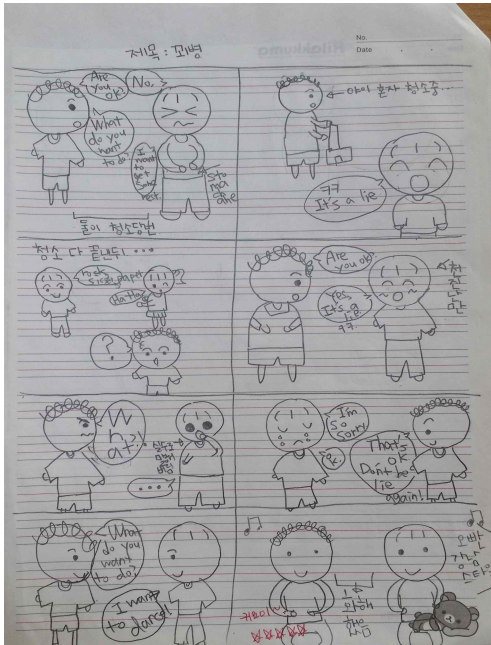 No.
Date
제목 : 꾀병
Are
you
ok?
No.
What
do you
want
to do?
I
want
to
get
some
rest.
sto
ma
ch
ache
둘이 청소당번
←아이 혼자 청소중...
ㅋㅋ
It's a lie
청소 다 끝낸뒤 ...
rock
sissor paper
Ha Ha
?
?
Are
you ok?
Yes,
It's a
lie
ㅋㅋ.
천진난만
W
h
at?!
실수로
말해
버림
...
I'm
so
sorry
ok.
That's
ok
Don't be
lie
again!
What
do you
want
to do?
I want
to dance!
♪♫
오빤
강남
스타일
♫
귀요미~
☆☆☆☆☆
화해
했음